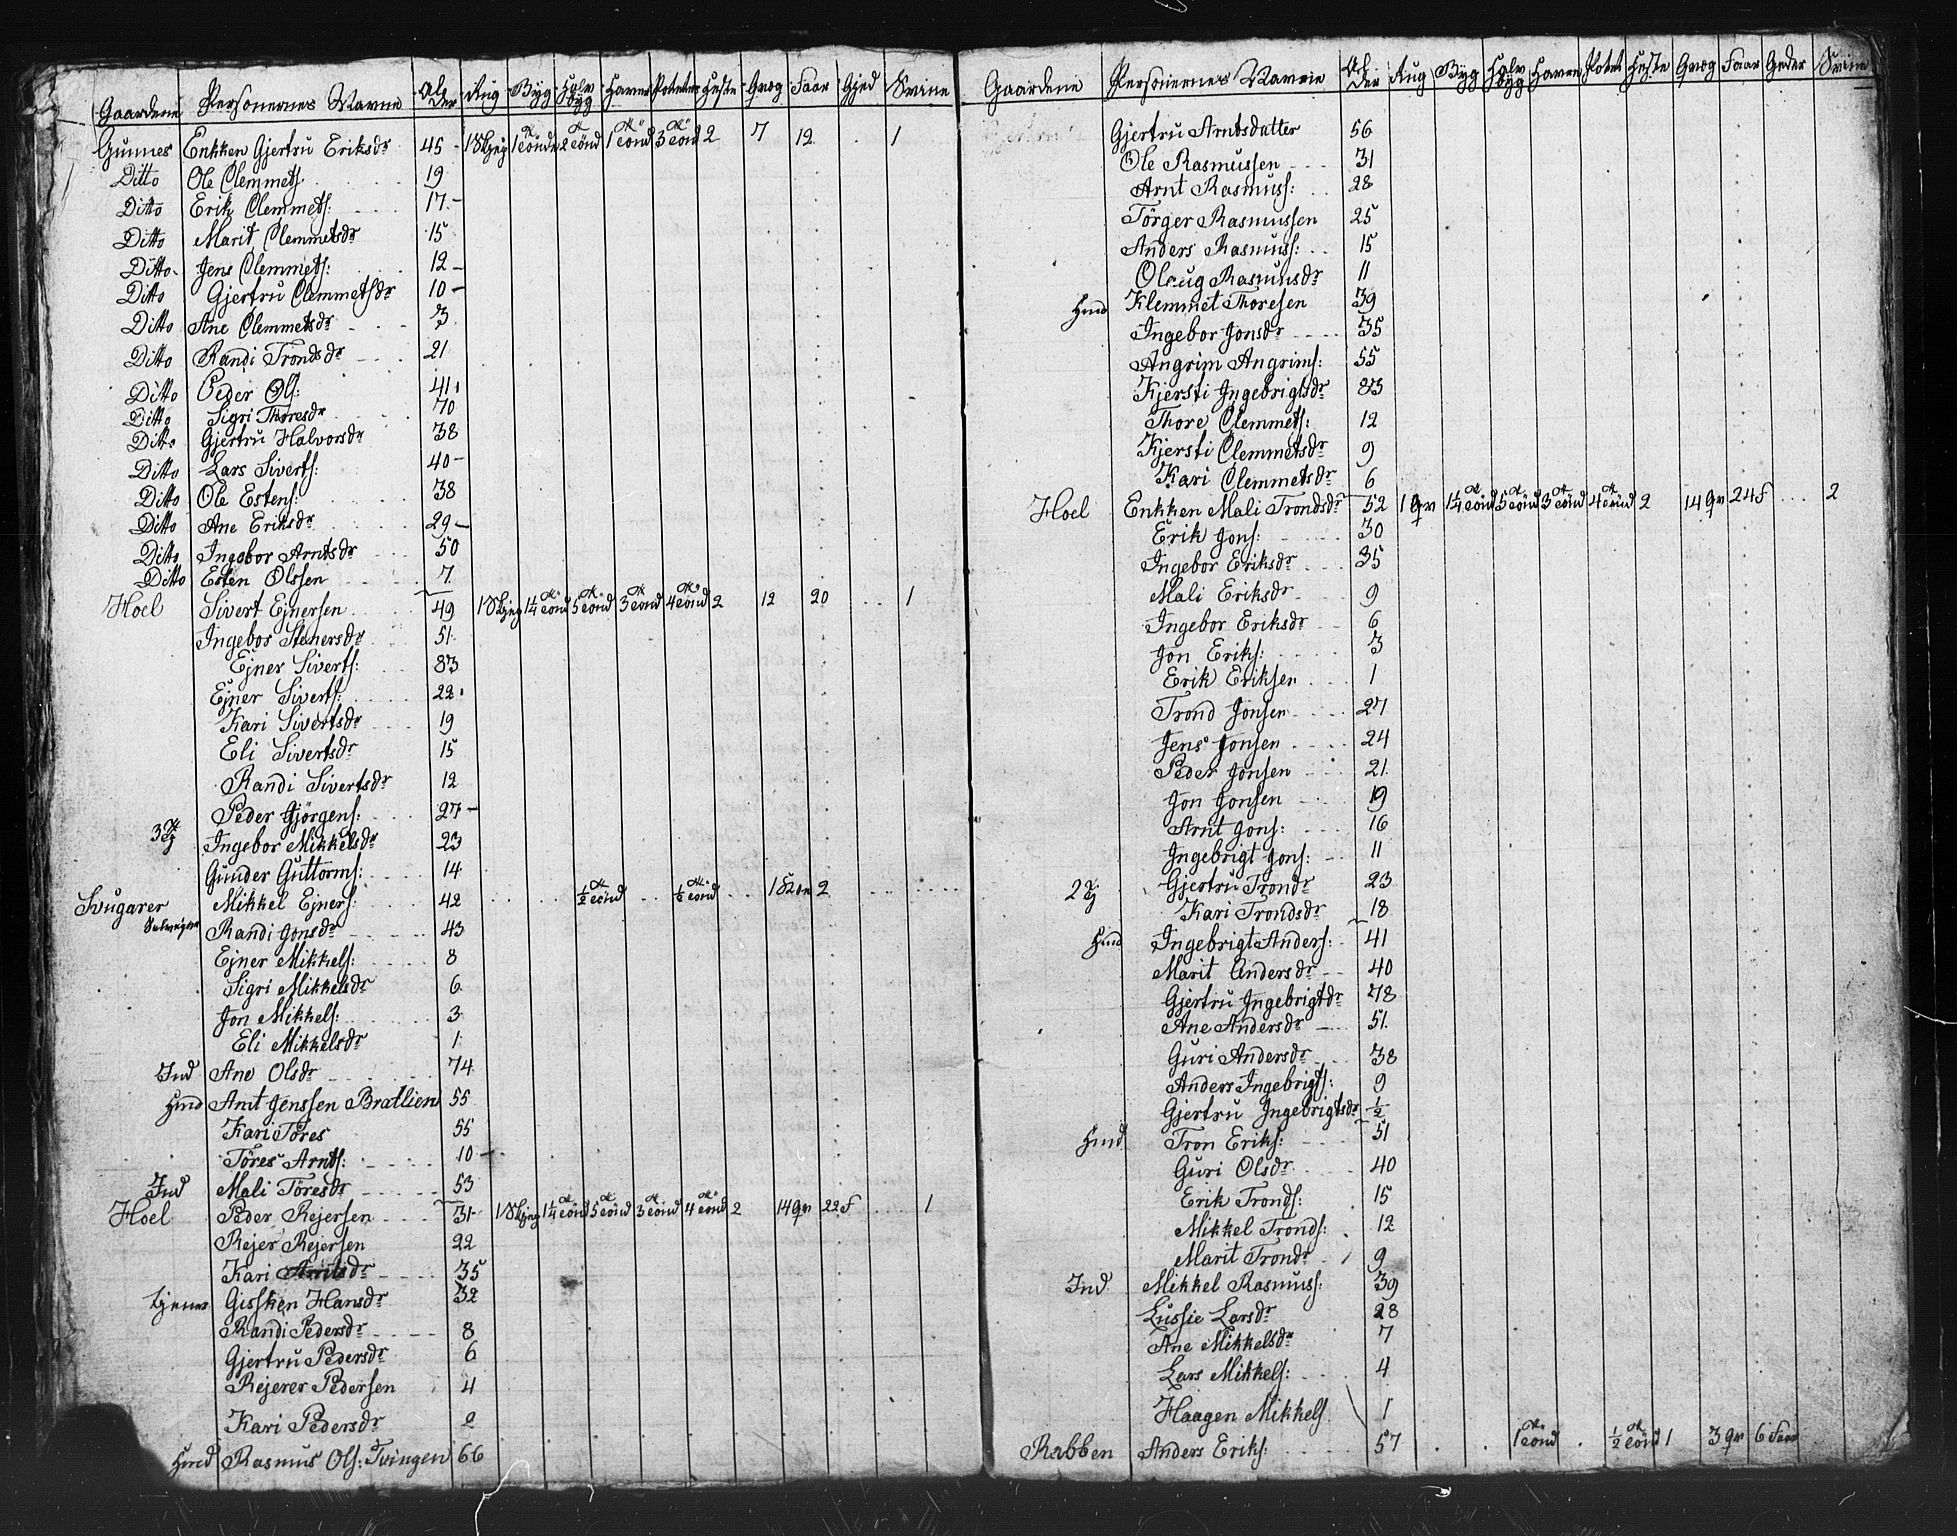 Gaardene Personernes Navne Alder Rug Byg Halvbyg Havre Potetes Heste Qvæg Faar Gjed Svine
Gunnes Enkken Gjertru Eriksdr 45 1 2 7 12 1
Ditto Ole Clemmets 19
Ditto Erik Clemmets: 17
Ditto Marit Clemmetsdr 15
Ditto Jens Clemmets: 12
Ditto Gjertru Clemmetsdr 10
Ditto Ane Clemmetsdr 3
Ditto Randi Trondsdr 21
Ditto Peder Ols: 41
Ditto Sigri Thoresdr 70
Ditto Gjertru Halvorsdr 38
Ditto Lars Siverts: 40
Ditto Ole Estens: 38
Ditto Ane Eriksdr 29
Ditto Ingebor Arntsdr 50
Ditto Esten Olssen 7
Hoel Sivert Ejnersen 49 2 12 20 1
Ingebor Stenersdr 51
Ejner Siverts: 83
Ejner Siverts: 22
Kari Sivertsdr 19
Eli Sivertsdr 15
Randi Sivertsdr 12
Peder Gjörgens: 27
Ingebor Mikkelsdr 23
Gunder Guttorms: 14
Svugarer Mikkel Ejners: 42 ½ tönd ½ tönd 2
Randi Jonsdr 43
Ejner Mikkels: 8
Sigri Mikkelsdr 6
Jon Mikkels: 3
Eli Mikkelsdr 1
Ind Ane Olsdr 74
Hmd Arnt Jenssen Brætlien 55
Kari Töres 55
Töres Arnts: 10
Ind Mali Töresdr 53
Hoel Peder Rejersen 31 1¼ tönd 5 tönd 3 tönd 4 tönd 2 14 qv 22 f 1
Rejer Rejersen 22
Kari Arntsdr 35
tjener Gissken Hansdr 32
Randi Pedersdr 8
Gjertru Pedersdr 6
Rejerer Pedersen 4
Kari Pedersdr 2
Hmd Rasmus Ols: Tvingen 66
Gaardene Personernes Navne Alder Rug Byg Halvbyg Havre Potet Heste Qvæg Faar Geder Svine
Gjertru Arntsdatter 56
Ole Rasmussen 31
Arnt Rasmuss: 28
Törger Rasmussen 25
Anders Rasmuss: 15
Olaug Rasmusdr 11
Hmd Klemmet Thoresen 39
Ingebor Jonsdr 35
Angrim Angrims: 55
Kjersti Ingebrigtsdr 83
Thore Clemmets: 12
Kjersti Clemmetsdr 9
Kari Clemmetsdr 6
Hoel Enkken Mali Trondsdr 52 1 qv 1¼ tönd 5 tönd 3 tönd 4 tönd 2 14 qv 24 f 2
Erik Jons: 30
Ingebor Eriksdr 35
Mali Eriksdr 9
Ingebor Eriksdr 6
Jon Eriks: 3
Erik Eriksen 1
Trond Jonsen 27
Jens Jonsen 24
Peder Jonsen 21
Jon Jonsen 19
Arnt Jons: 16
Ingebrigt Jons: 11
Gjertru Trondr 23
Kari Trondsdr 18
Hmd Ingebrigt Anders: 41
Marit Andersdr 40
Gjertru Ingebrigtdr 78
Ane Andersdr 51
Guri Andersdr 38
Anders Ingebrigts: 9
Gjertru Ingebrigtsdr ½
Hmd Tron Eriks: 51
Guri Olsdr 40
Erik Tronds: 15
Mikkel Tronds: 12
Marit Trondr 9
Ind Mikkel Rasmuss: 39
Lussie Larsdr 28
Ane Mikkelsdr 7
Lars Mikkels: 4
Haagen Mikkels 1
Rabben Anders Eriks: 57 1 tönd ½ tönd 1 3 qv 6 Faar